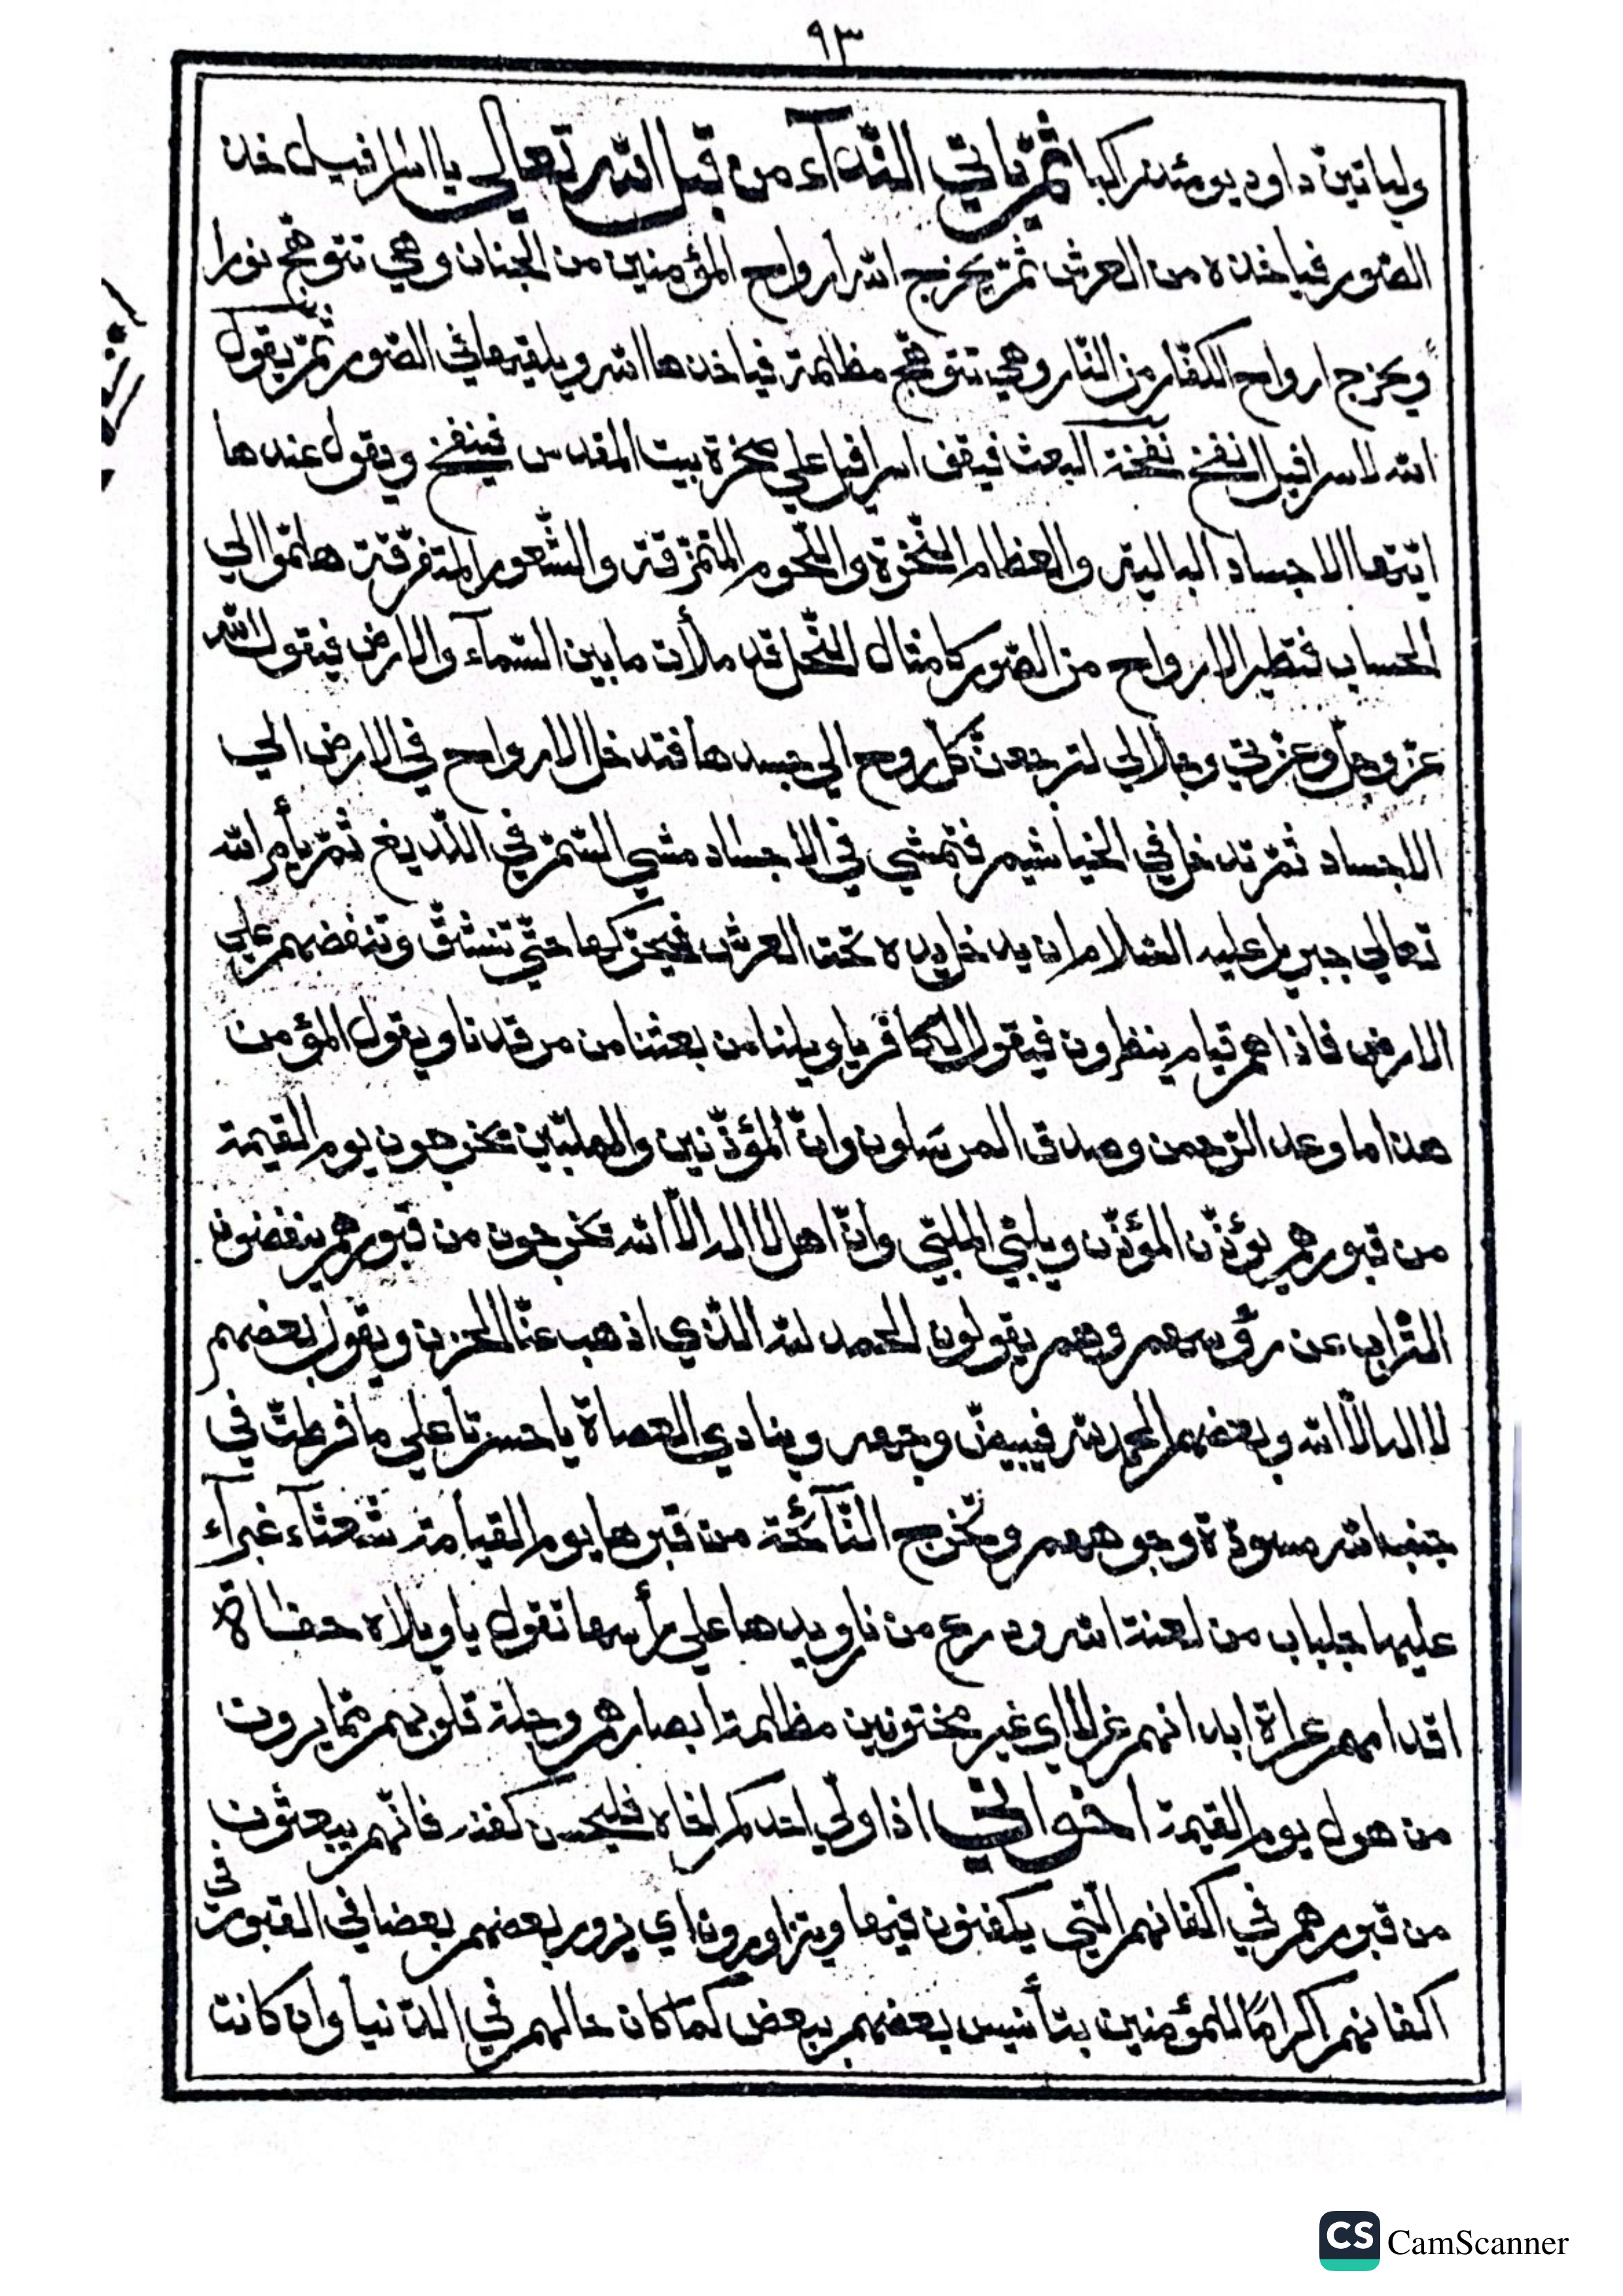 ٩٣
وليأتين داود يومئذ راكبا ثمّ يأتي النّدآء من قبل الله تعالى يا اسرافيل خذ
الصّور فياخذه من العرش ثمّ يخرج الله ارواح المؤمنين من الجنان وهي تتوهّج نورا
ويخرج ارواح الكفّار من النّار وهي تتوهّج مظلمة فياخذها الله ويلقيها في الصّور ثمّ يقول
الله لاسرافيل انفخ نفخة البعث فيقف اسرافيل علي صخرة بيت المقدس فينفخ ويقول عندها
ايّتها الاجساد البالية والعظام النّخرة واللّحوم المتمزّقة والشّعور المتفرّقة هلمّوا الي
الحساب فتطير الارواح من الصّور كامثال النّحل قد ملأت ما بين السّمآء والارض فيقول الله
عزّ وجلّ وعزّتي وجلالي لترجعنّ كلّ روح الي جسدها فتدخل الارواح في الارض الي
الاجساد ثمّ تدخل في الخياشيم فتمشي في الاجساد مشي السّمّ في اللّديغ ثمّ يأمر الله
تعالي جبريل عليه السّلام ان يدخل يده تحت العرش فيحرّكها حتّي تنشقّ وتنفضهم علي
الارض فاذا هم قيام ينظرون فيقول الكافر يا ويلنا من بعثنا من مرقدنا ويقول المؤمن
هذا ما وعد الرّحمن وصدق المرسلون وانّ المؤذّنين والملبّين يخرجون يوم القيمة
من قبورهم يؤذّن المؤذّن ويلبّي الملبّي وانّ اهل لا اله الاّ الله يخرجون من قبورهم ينفضون
التّراب عن رؤسهم وهم يقولون الحمد لله الّذي اذهب عنّا الحزن ويقول بعضهم
لا اله الاّ الله وبعضهم الحمد لله فيبيضّ وجهه وينادي العصاة يا حسرتا علي ما فرطتّ في
جنب الله مسودّة وجوههم وتخرج النّآئحة من قبرها يوم القيامة شعثآء غبرآء
عليها جلباب من لعنة الله ودرع من نار ويدها علي رأسها تقول يا ويلاه حفاة
اقدامهم عراة ابدانهم غرلا اي غير مختونين مظلمة ابصارهم وجلة قلوبهم ممّا يرون
من هول يوم القيمة اخواني اذا ولي احدكم اخاه فليحسن كفنه فانّهم يبعثون
من قبورهم في اكفانهم الّتي يكفنون فيها ويتزاورون اي يزور بعضهم بعضا في القبور في
اكفانهم اكراما للمؤمنين بتأنيس بعضهم ببعض كما كان حالهم في الدّنيا وان كانت
CS CamScanner